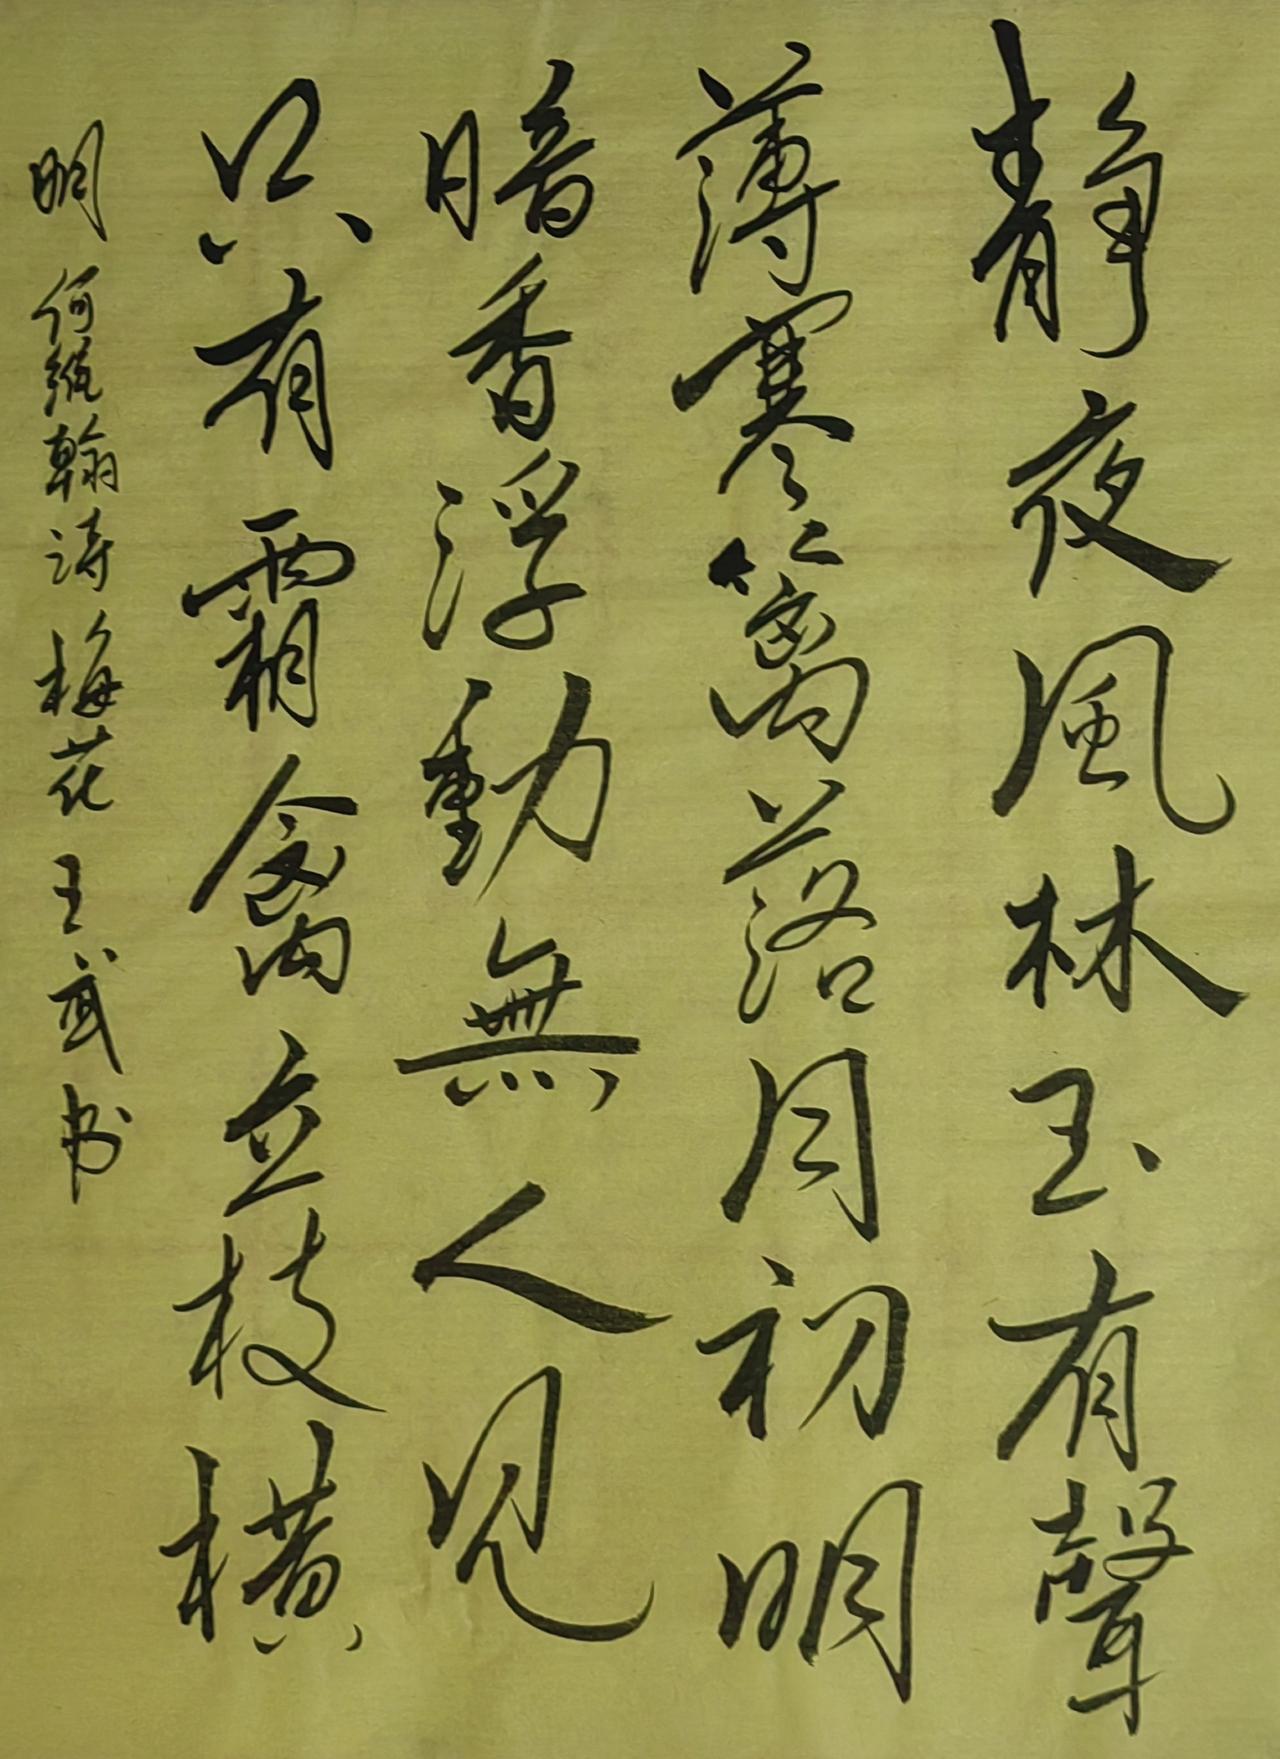 靜夜風林玉有聲
薄寒籬落月初明
暗香浮動無人見
只有霜禽立枝橫
明 何維翰诗 梅花 王武书